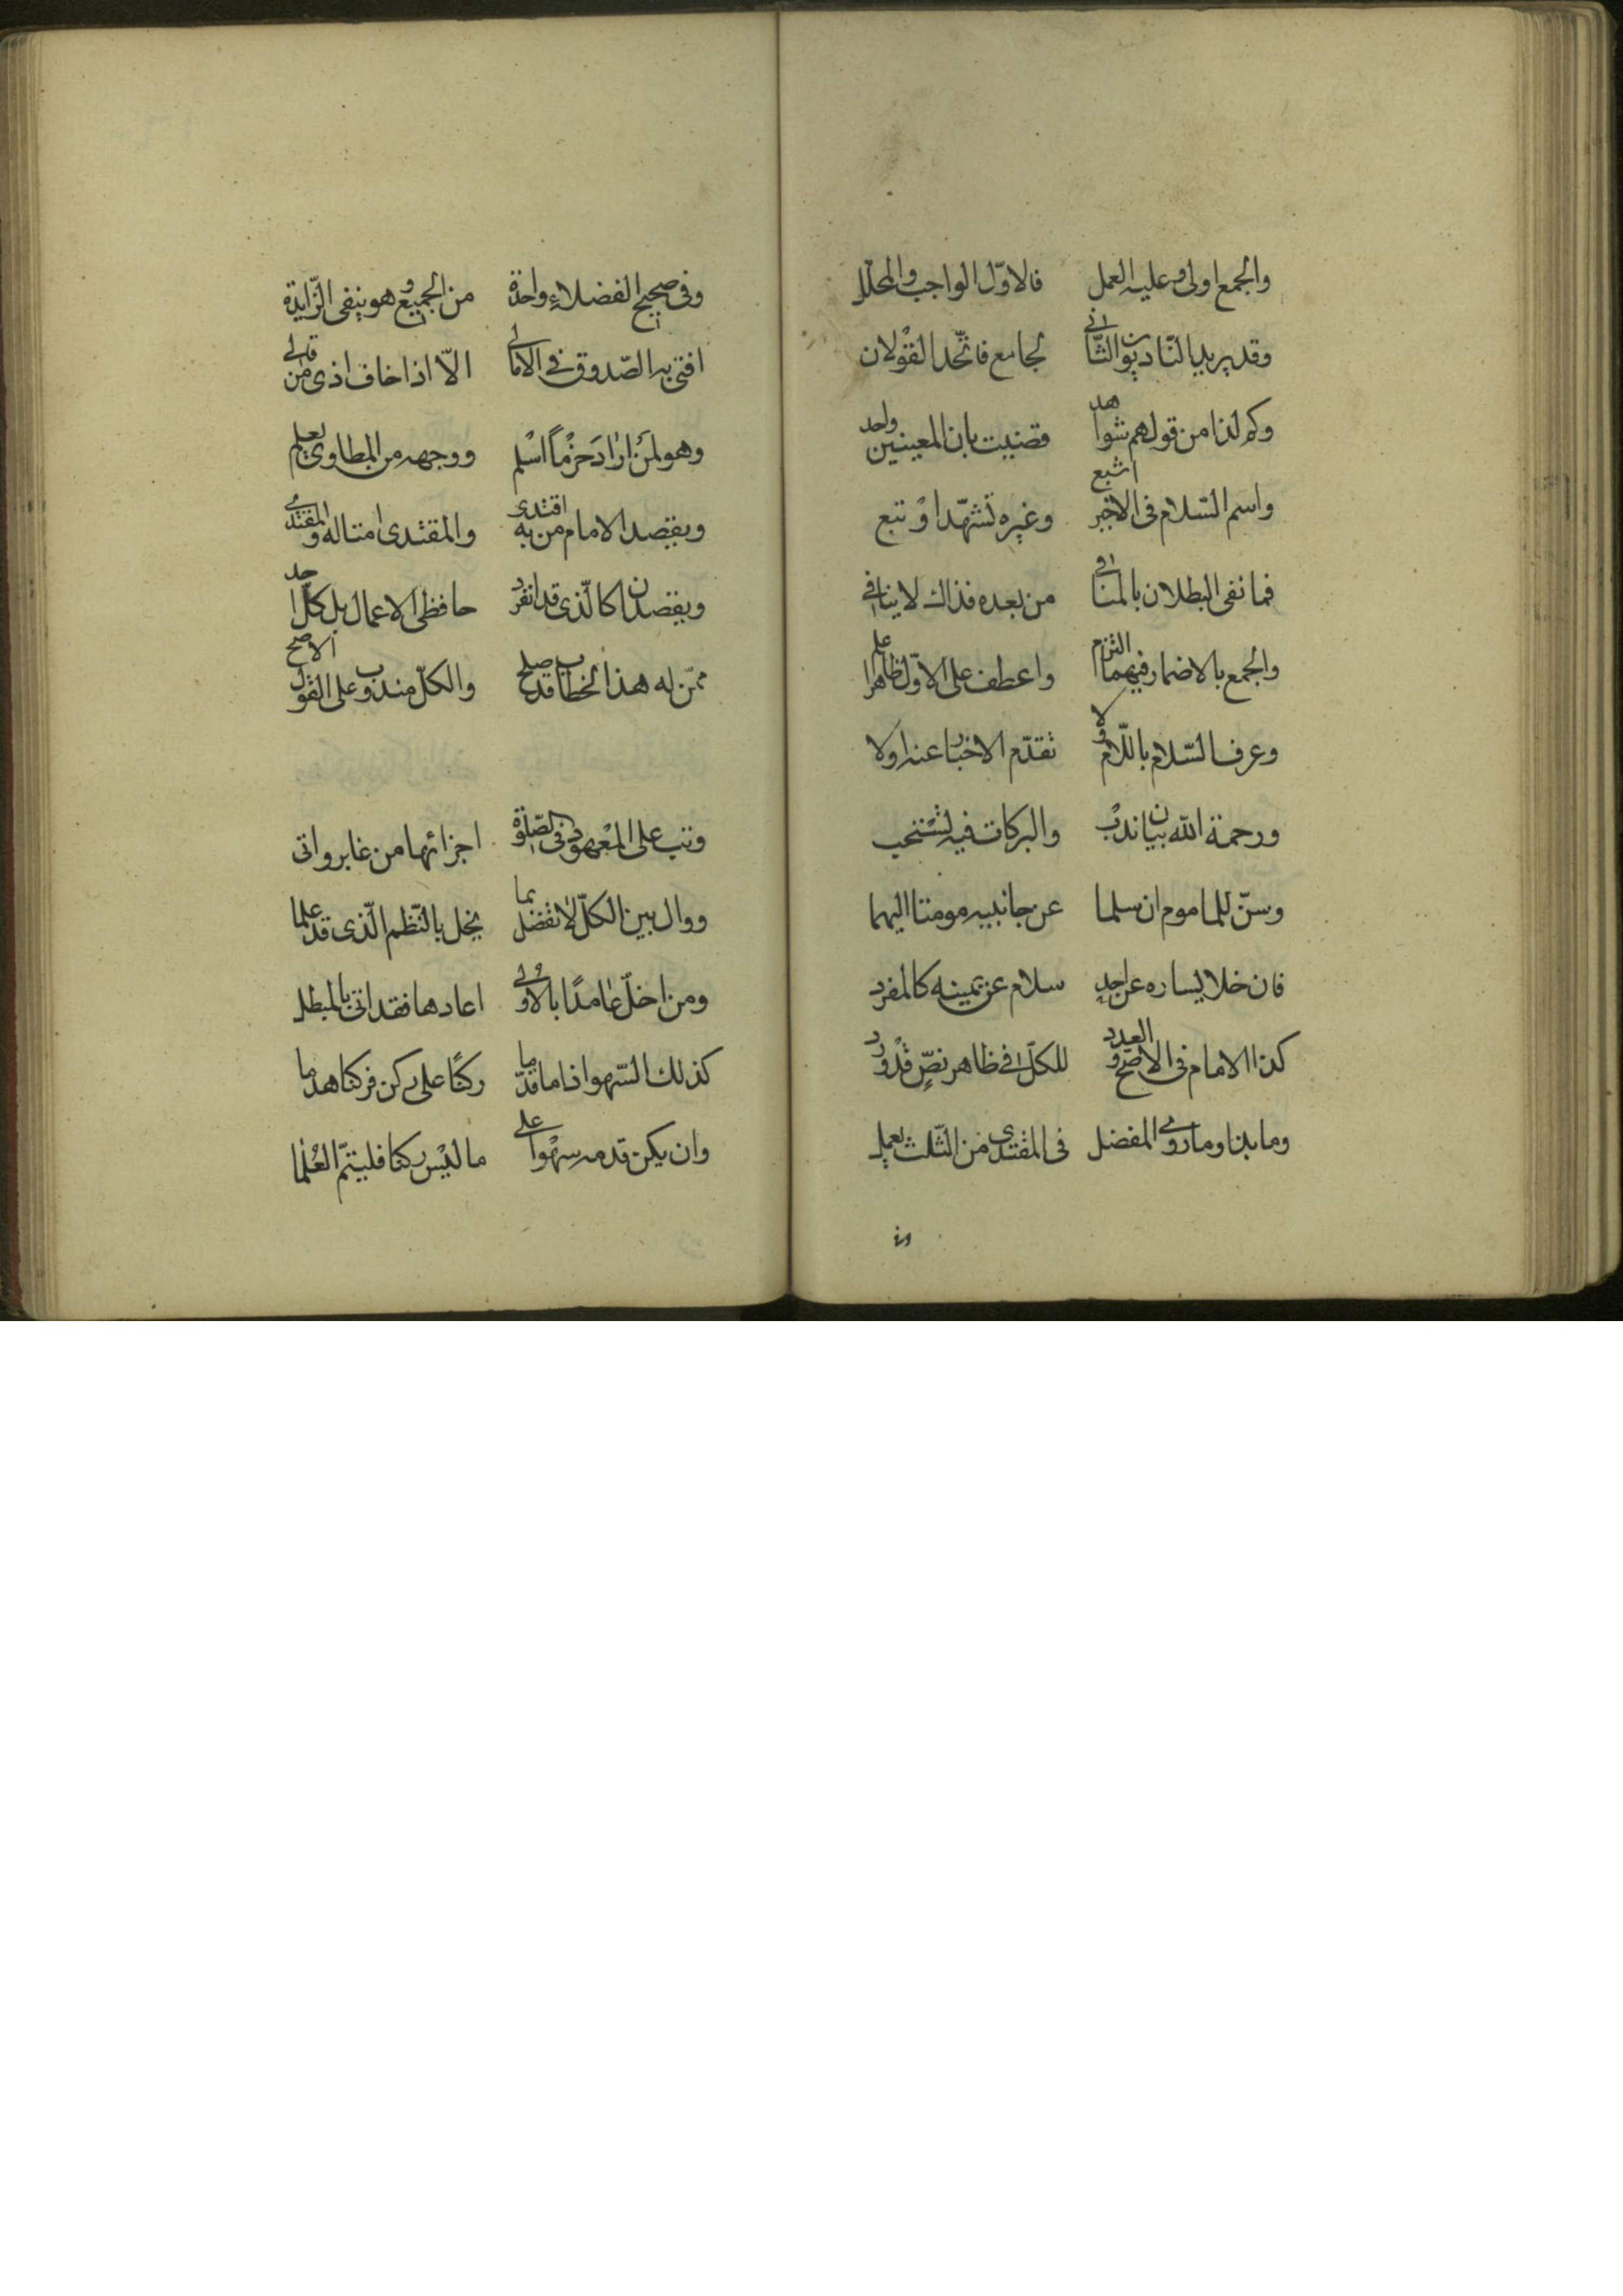 والجمع اولى وعليه العمل فالاوّل الواجب والمحلل
وقد يريد النّادبون الثّانى لجامع فاتّحد القولان
وكم لذا من قولهم شواهد قضيت بان المعينين واحد
واسم السّلام فى الاخير اشيع وغيره تشهّدا وتبع
فما نفى البطلان بالمنافى من بعده فذاك لا ينافى
والجمع بالاضمار فيهما التزم واعطف على الاوّل ظاهرا علم
وعرف السّلام باللّام ولا تقدّم الاخبار عنه اولا
ورحمة الله بيان ندب والبركات فيه تستحب
وسنّ للماموم ان سلما عن جانبيه مومتا اليهما
فان خلا يساره عن احد سلام عن يمينه كالمفرد
كذا الامام فى الاصحّ والعدد للكلّ فى ظاهر نصّ قد ورد
وما بذا وما روى المفضل فى المقتدى من الثّلث يعمل
وفى صحيح الفضلاء واحدة من الجميع وهو ينفى الزّايدة
افتى به الصّدوق فى الامالى الّا اذا خاف اذى من قالى
وهو لمن اراد حزما اسلم ووجهه من المطاوى يعلم
ويقصد الامام من به اقتدى والمقتدى امثاله والمقتدى
ويقصدن كالّذى قد انفرد حافظى الاعمال بل كلّ احد
ممّن له هذا الخطاب قد صلح والكلّ مندوب على القول الاصح
وتب على المعهود فى الصّلوة اجزائها من غابر واتى
ووال بين الكلّ لا تفضل بما يخل بالنّظم الّذى قد علما
ومن اخلّ عامدًا بالاوّلى اعادها فقد اتى بالمبطل
كذلك السّهو اذا ما قدّما ركنًا على ركن فركنا هدما
وان يكن قدمه سهوا على ما ليس ركنا فليتمّ العملا